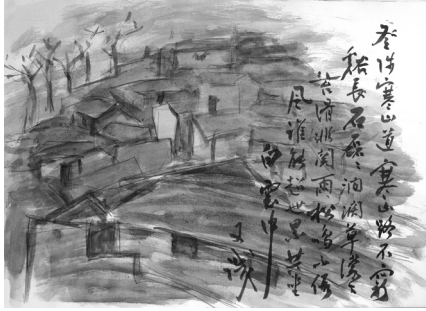 登陟寒山道寒山路不窮
谿長石磊々澗闊草濛々
苔滑非關雨松鳴不假
風誰能超世累共坐
白雲中